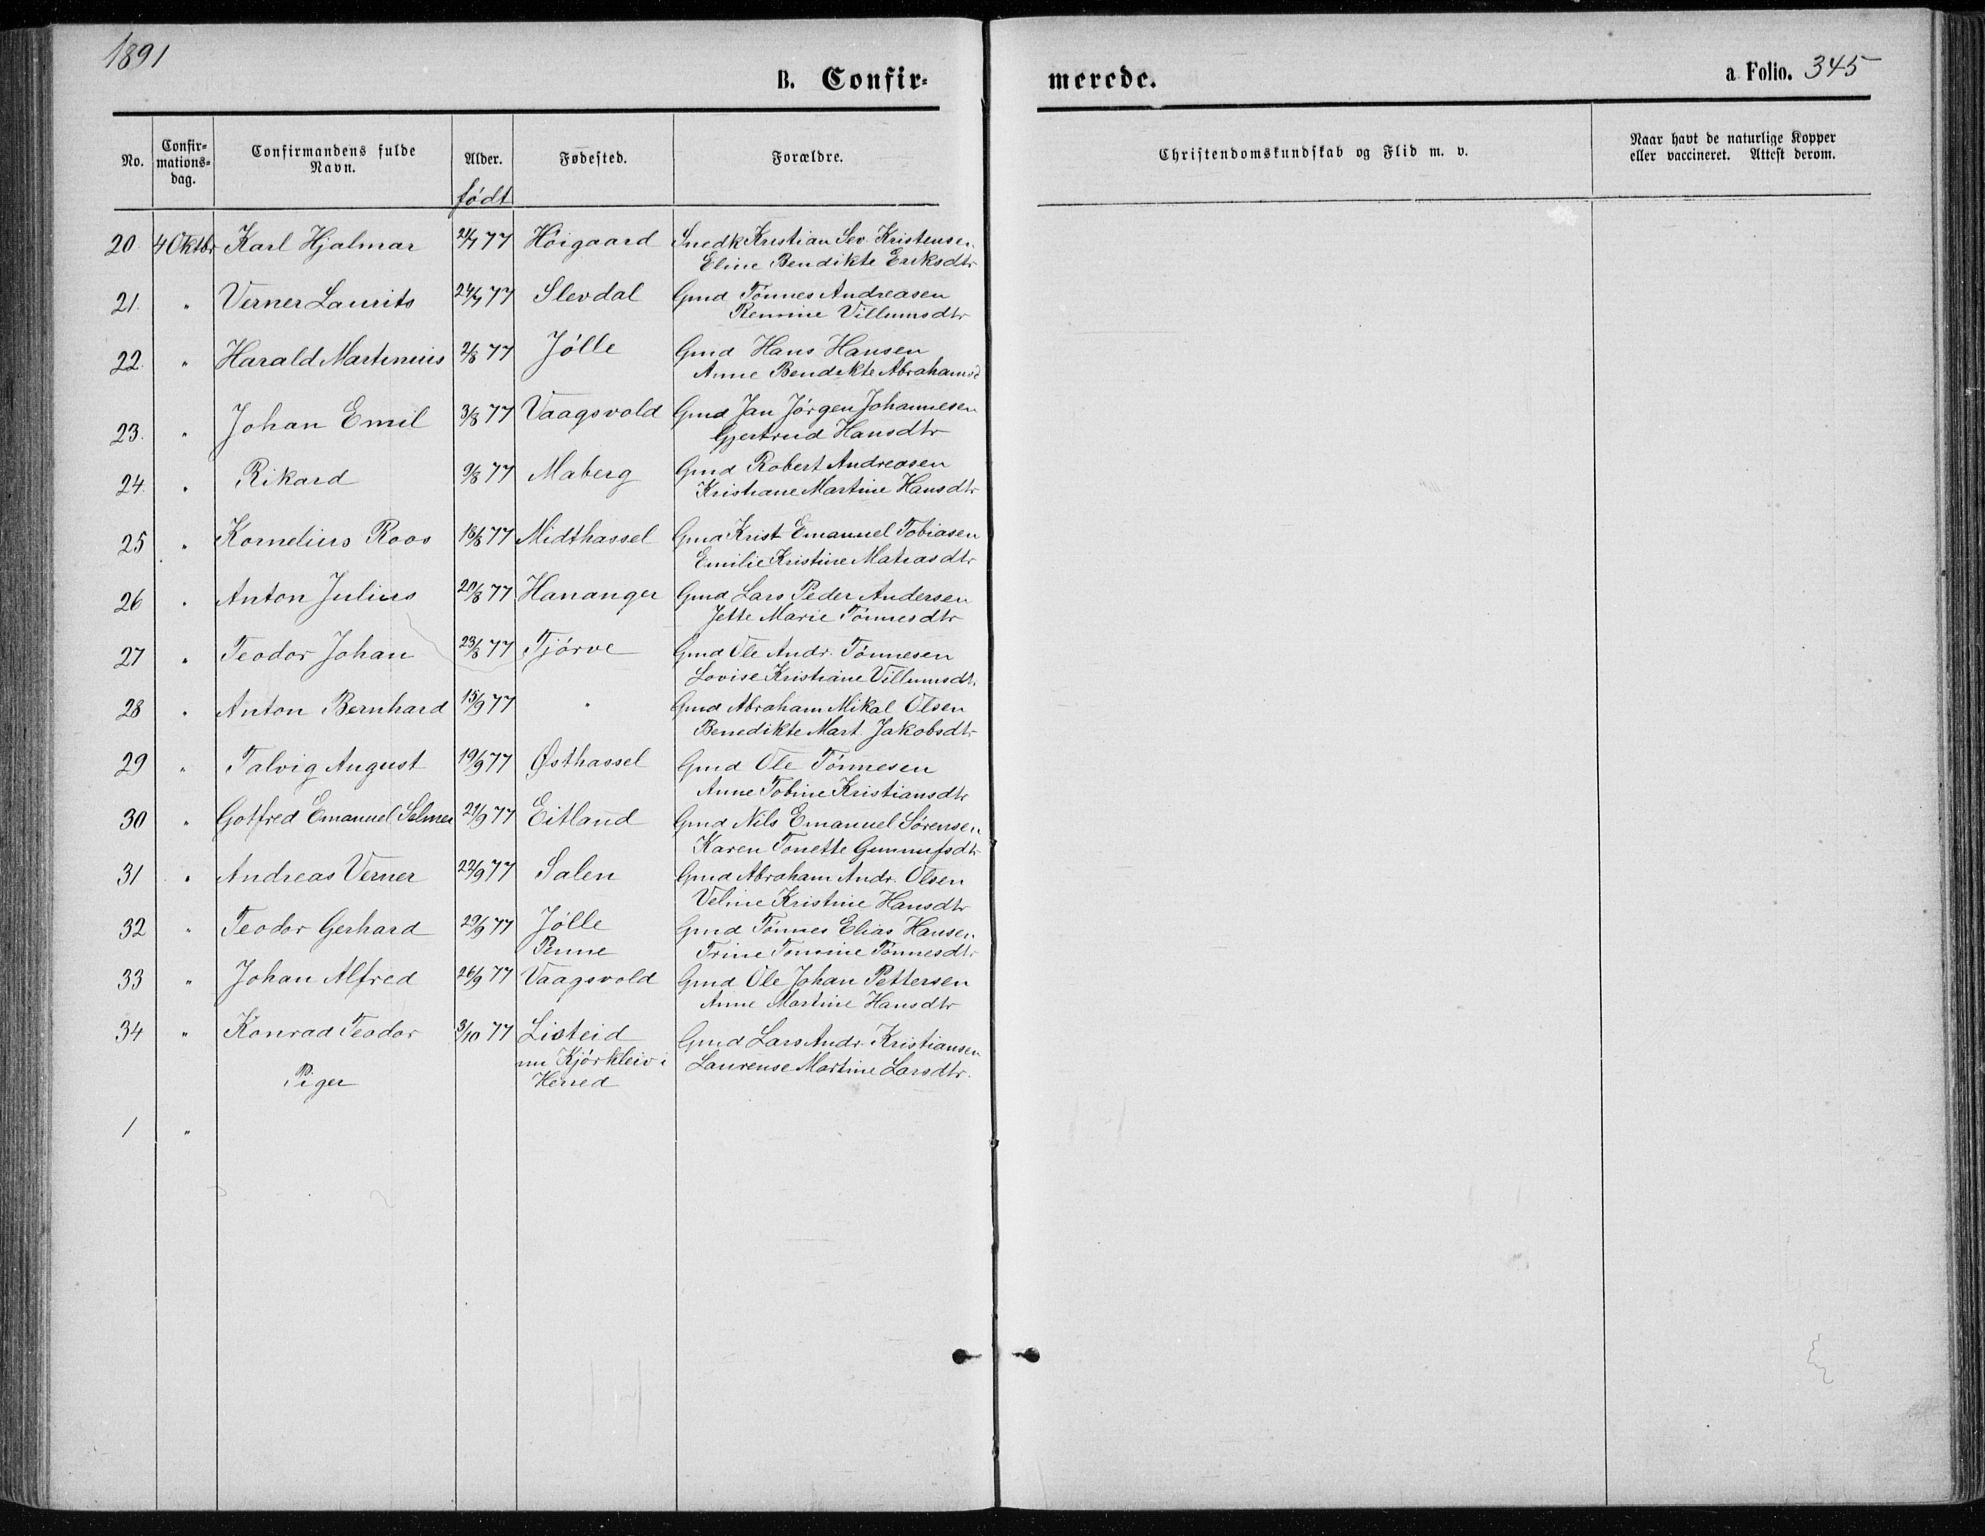 1891
B. Confir=
merede.
a Folio. 345
No.
Confir=
mations=
dag.
Confirmandens fulde
Navn.
Alder.
født
Fødested.
Forældre.
Christendomskundskab og Flid m. v.
Naar havt de naturlige Kopper
eller vaccineret. Attest derom.
20 4 Oktbr Karl Hjalmar 21/7 77 Høigaard Snedk Kristian Sev. Kristensen
Eline Bendikte Eriksdtr
21. " Verner Laurits 24/7 77 Slevdal Gmd Tønnes Andreasen
Renine Villumsdtr
22 " Harald Martinius 2/8 77 Jølle Gmd Hans Hansen
Anne Bendikte Abrahamsd
23. " Johan Emil 3/8 77 Vaagsvold Gmd Jan Jørgen Johannesen
Gjertrud Hansdtr
24. " Rikard 9/8 77 Maberg Gmd Robert Andreasen
Kristiane Martine Hansdtr
25 " Kornelius Roos 18/8 77 Midthassel Gmd Krist Emanuel Tobiasen
Emilie Kristine Matiasdtr
26 " Anton Julius 20/8 77 Hananger Gmd Lars Peder Andersen
Jette Marie Tønnesdtr
27 " Teodor Johan 23/8 77 Tjørve Gmd Ole Andr. Tønnesen
Lovise Kristiane Villumsdtr
28 " Anton Bernhard 15/9 77 " Gmd Abraham Mikal Olsen
Benedikte Mart Jakobsdtr
29 " Talvig August 19/9 77 Østhassel Gmd Ole Tønnesen
Anne Tobine Kristiansdtr
30 " Gotfred Emanuel Selmer 21/9 77 Eitland Gmd Nils Emanuel Sørensen
Karen Tonette Gunnufsdtr
31 " Andreas Verner 22/9 77 Salen Gmd Abraham Andr. Olsen
Veline Kristine Hansdtr
32 " Teodor Gerhard 29/9 77 Jølle Gmd Tønnes Elias Hansen
Penne Trine Tomine Tønnesdtr
33 " Johan Alfred 26/9 77 Vaagsvold Gmd Ole Johan Pettersen
Anne Martine Hansdtr
34 " Konrad Teodor 3/10 77 Listeid Gmd Lars Andr. Kristiansen
nu Kjørkleiv i Laurense Martine Larsdtr.
Piger Herred
1 "